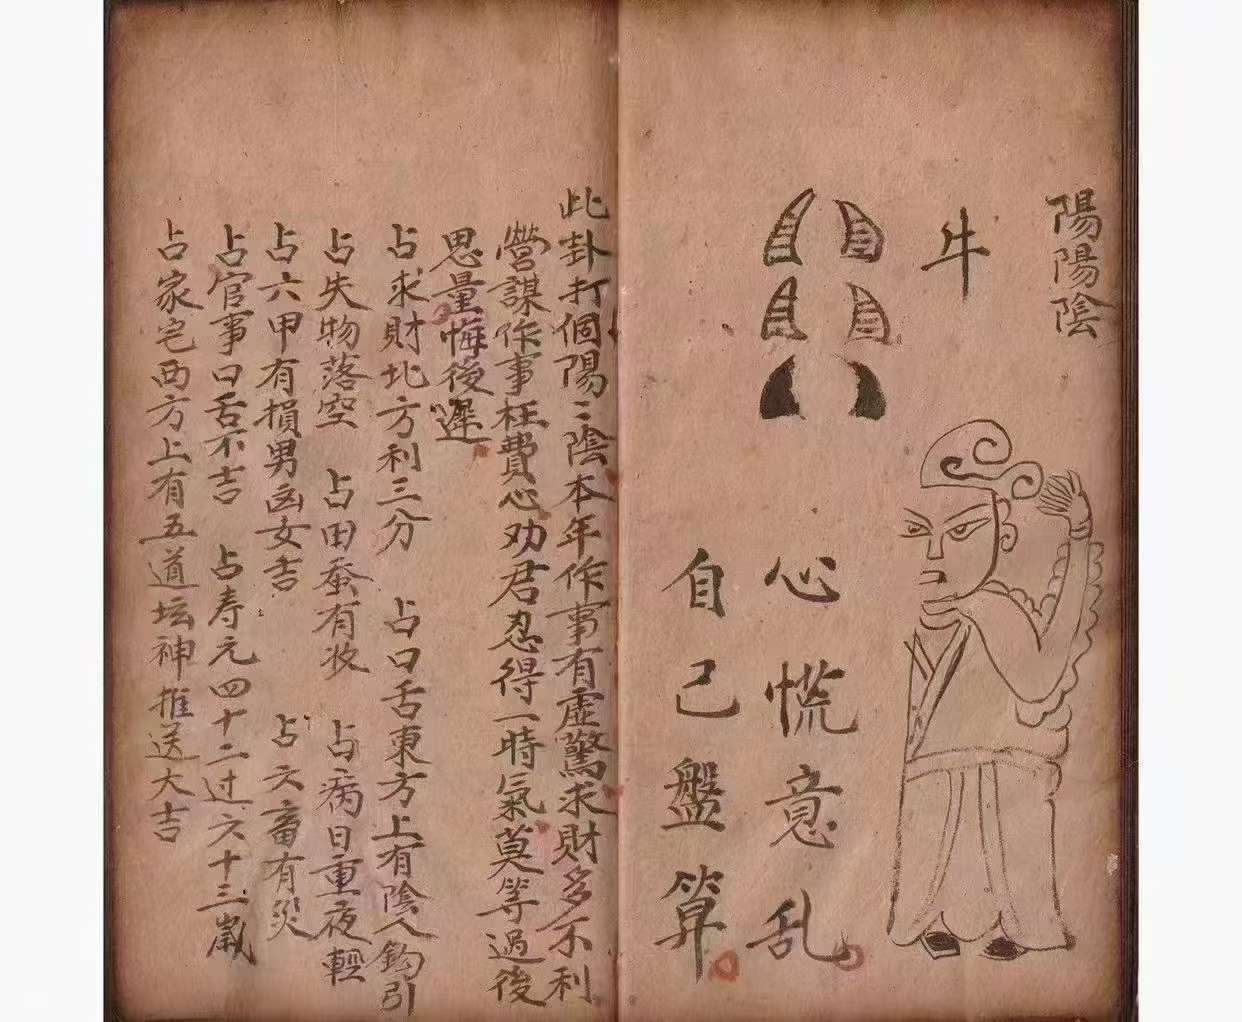 陽陽陰
牛
心慌意乱
自己盤算
此卦打個陽〻陰本年作事有虛驚求財多不利
營謀作事枉費心劝君忍得一時氣莫等過後
思量悔後遲
占求財北方利三分 占口舌東方上有陰人鈎引
占失物落空 占田蚕有收 占病日重夜輕
占六甲有損男凶女吉 占六畜有災
占官事口舌不吉 占寿元四十二过六十三嵗
占家宅西方上有五道坛神推送大吉